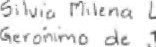 Silvia Milena
Gerónimo de